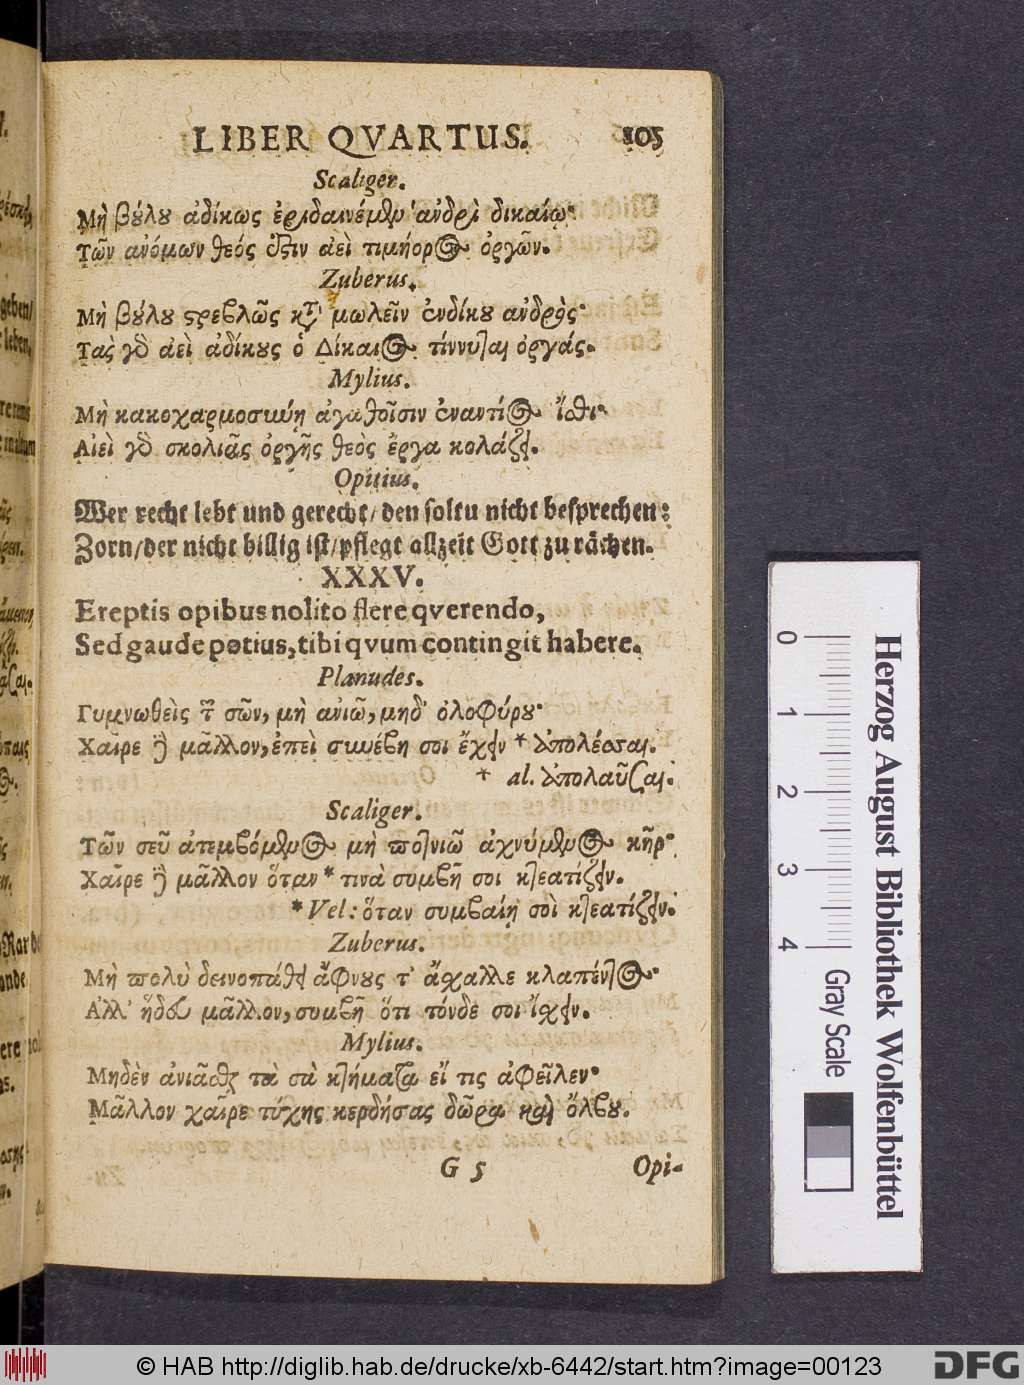 LIBER QVARTUS. 105
Scaliger.
Μὴ βούλου ἀδίκως ἐριδαινέμεν ἀνδρὶ δικαίῳ·
Τῶν ἀνόμων θεός ἐστιν ἀεὶ τιμήορος ὀργῶν.
Zuberus.
Μὴ βούλου στρεβλῶς κατὰ μωλεῖν ἐνδίκου ἀνδρὸς·
Τὰς γὸ ἀεὶ ἀδίκους ὁ Δίκαιος τίννυται ὀργάς.
Mylius.
Μὴ κακοχαρμοσύνῃ ἀγαθοῖσιν ἐναντίος ἴσθι·
Αἰεὶ γὸ σκολιᾶς ὀργῆς θεὸς ἔργα κολάζει.
Opitius.
Wer recht lebt und gerecht/ den soltu nicht besprechen:
Zorn/der nicht billig ist/pflegt allzeit Gott zu rächen.
XXXV.
Ereptis opibus nolito flere qverendo,
Sed gaude potius, tibi qvum contingit habere.
Planudes.
Γυμνωθεὶς τῶν σῶν, μὴ ἀνιῶ, μηδ' ὀλοφύρου·
Χαῖρε δὲ μᾶλλον, ἐπεὶ συνέβη σοι ἔχειν * ἀπολέσσαι.
* al. ἀπολαῦσαι.
Scaliger.
Τῶν σεῦ ἀτεμβόμενος μὴ ποτνιῶ ἀχνύμενος κῆρ·
Χαῖρε δὲ μᾶλλον ὅταν * τινὰ συμβῇ σοι κτεατίζειν.
* Vel: ὅταν συμβαίη σοὶ κτεατίζειν.
Zuberus.
Μὴ πολὺ δεινοπάθει ἄφνους τ' ἄχαλλε κλαπέντος·
Ἀλλ' ἥδου μᾶλλον, συμβῇ ὅτι τόνδε σοι ἴχειν.
Mylius.
Μηδὲν ἀνιᾶσθε τὰ σὰ κτήματα εἴ τις ἀφεῖλεν·
Μᾶλλον χαῖρε τύχης κερδήσας δῶρα καὶ ὄλβου.
G 5 Opi-
0 1 2 3 4
Herzog August Bibliothek Wolfenbüttel
Gray Scale
© HAB http://diglib.hab.de/drucke/xb-6442/start.htm?image=00123
DFG